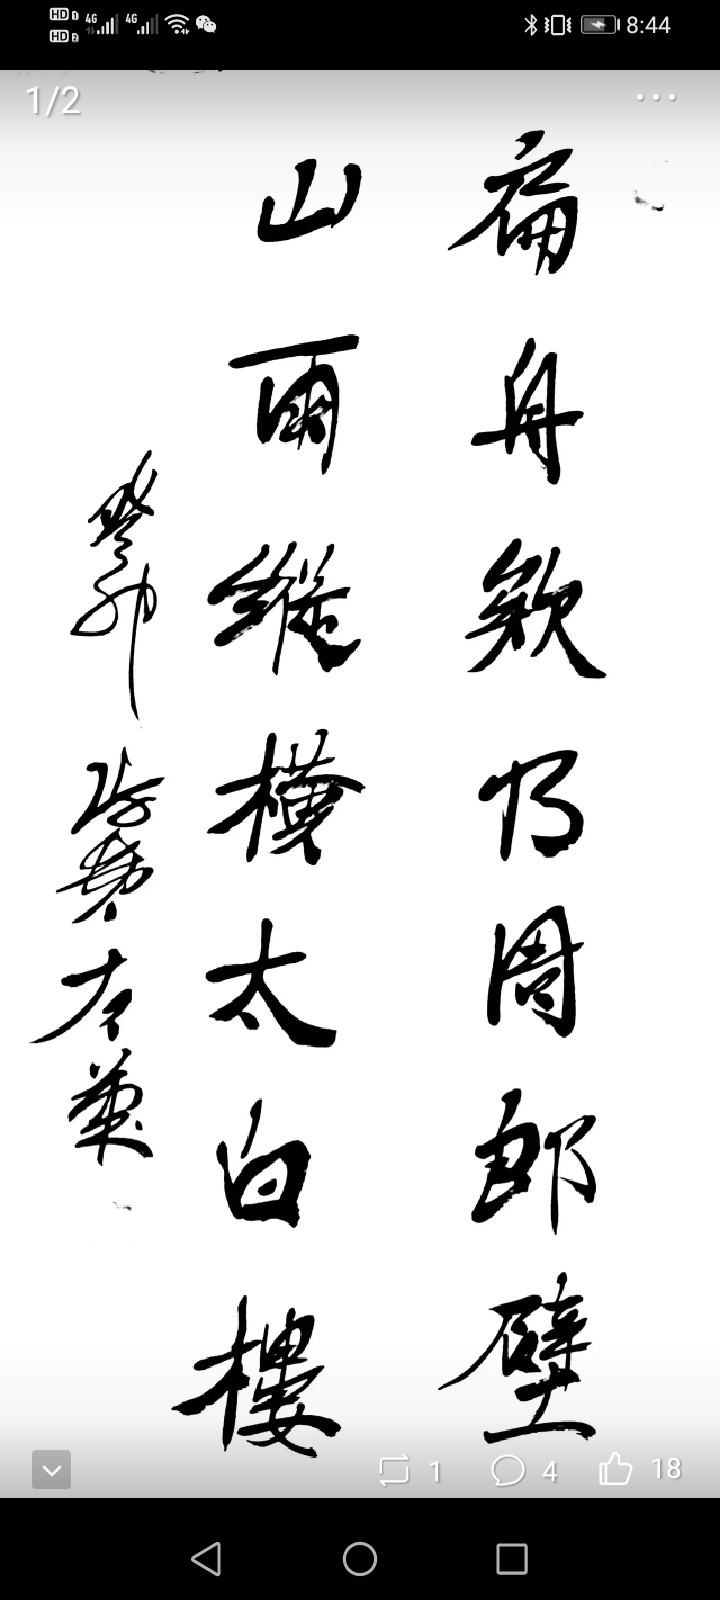 HD 1 4G 4G 8:44
HD 2
1/2
扁舟欸乃周郎壁
山雨縱橫太白樓
癸卯
1 4 18